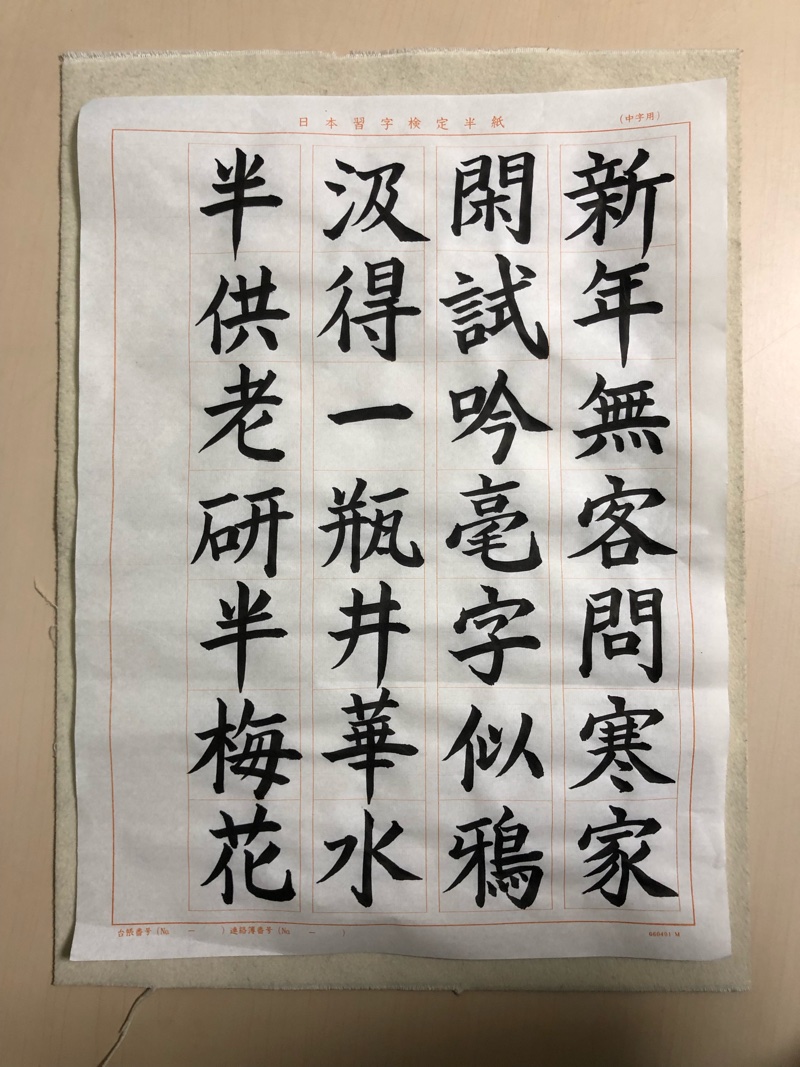 日本習字検定半紙
(中字用)
新年無客問寒家
閑試吟毫字似鴉
汲得一瓶井華水
半供老研半梅花
台帳番号(No － ) 連絡簿番号(No － )
660451 M